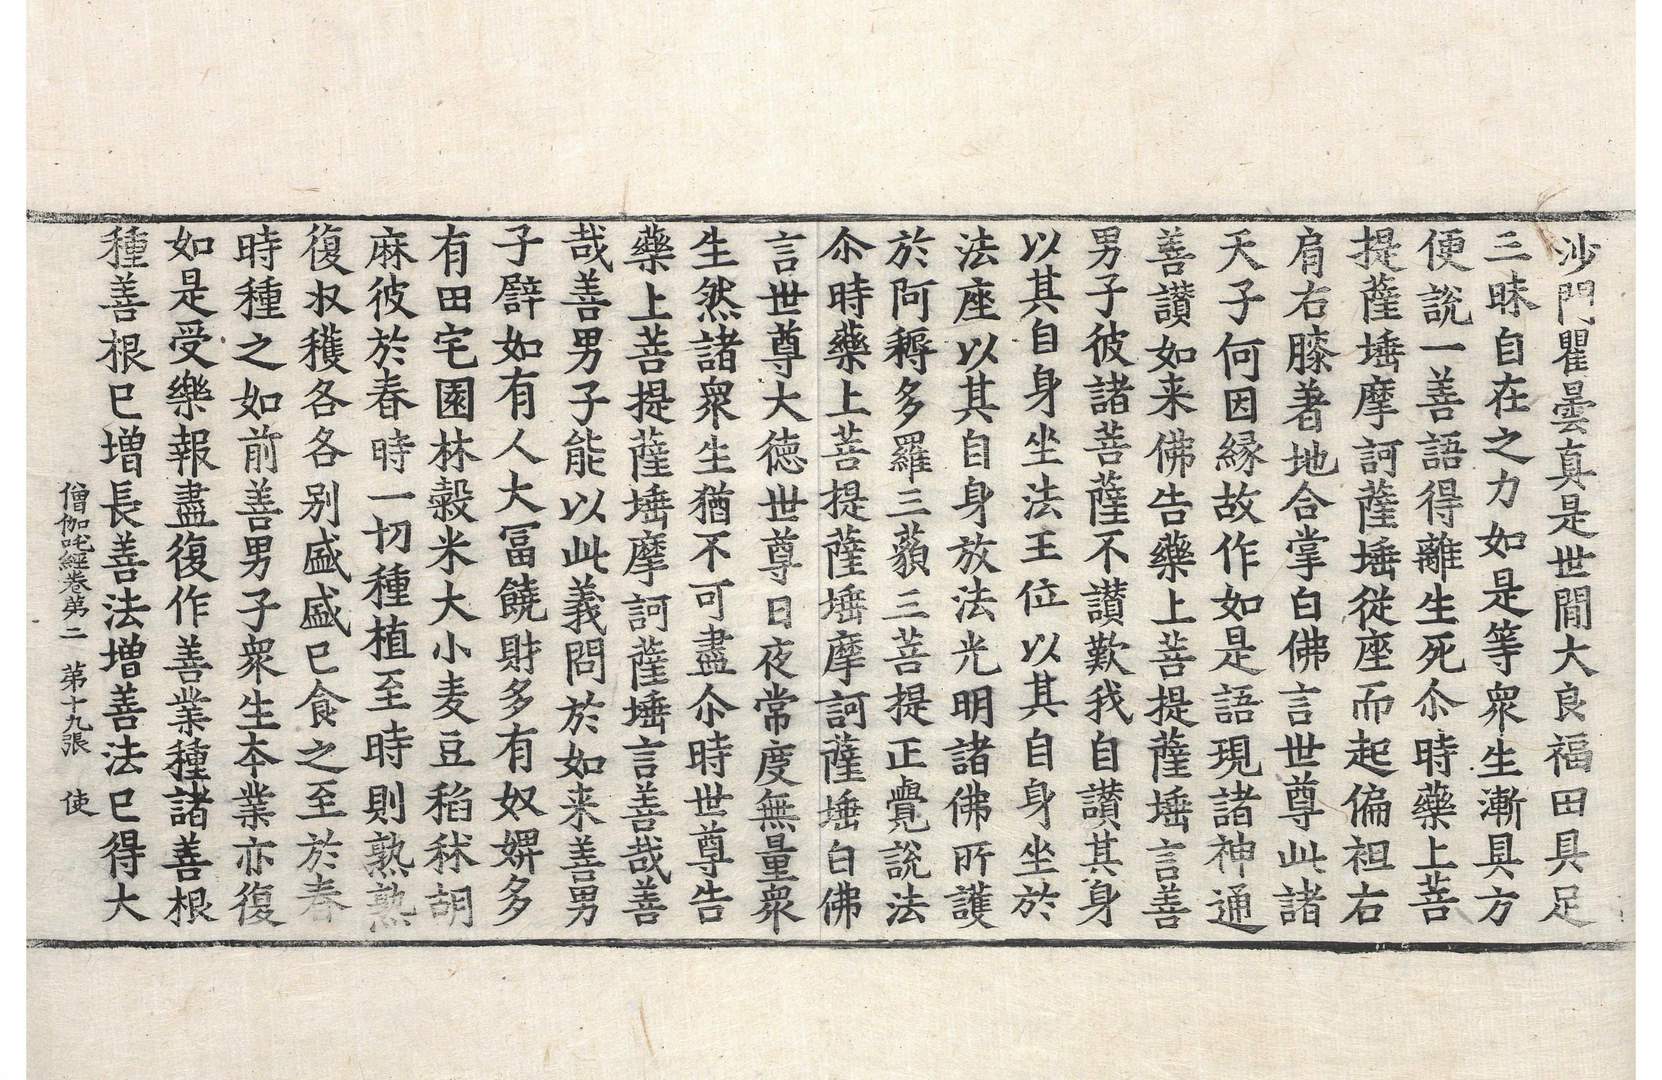 沙門瞿曇真是世間大良福田具足
三昧自在之力如是等衆生漸具方
便說一善語得離生死尒時藥上菩
提薩埵摩訶薩埵從座而起偏袒右
肩右膝著地合掌白佛言世尊此諸
天子何因緣故作如是語現諸神通
善讚如来佛告藥上菩提薩埵言善
男子彼諸菩薩不讚歎我自讚其身
以其自身坐法王位以其自身坐於
法座以其自身放法光明諸佛所護
於阿耨多羅三藐三菩提正覺說法
尒時藥上菩提薩埵摩訶薩埵白佛
言世尊大德世尊日夜常度無量衆
生然諸衆生猶不可盡尒時世尊告
藥上菩提薩埵摩訶薩埵言善哉善
哉善男子能以此義問於如来善男
子譬如有人大冨饒財多有奴婢多
有田宅園林穀米大小麦豆稻秫胡
麻彼於春時一切種植至時則熟熟
復收穫各各别盛盛已食之至於春
時種之如前善男子衆生夲業亦復
如是受樂報盡復作善業種諸善根
種善根已增長善法增善法已得大
僧伽吒經卷第二　第十九張　使